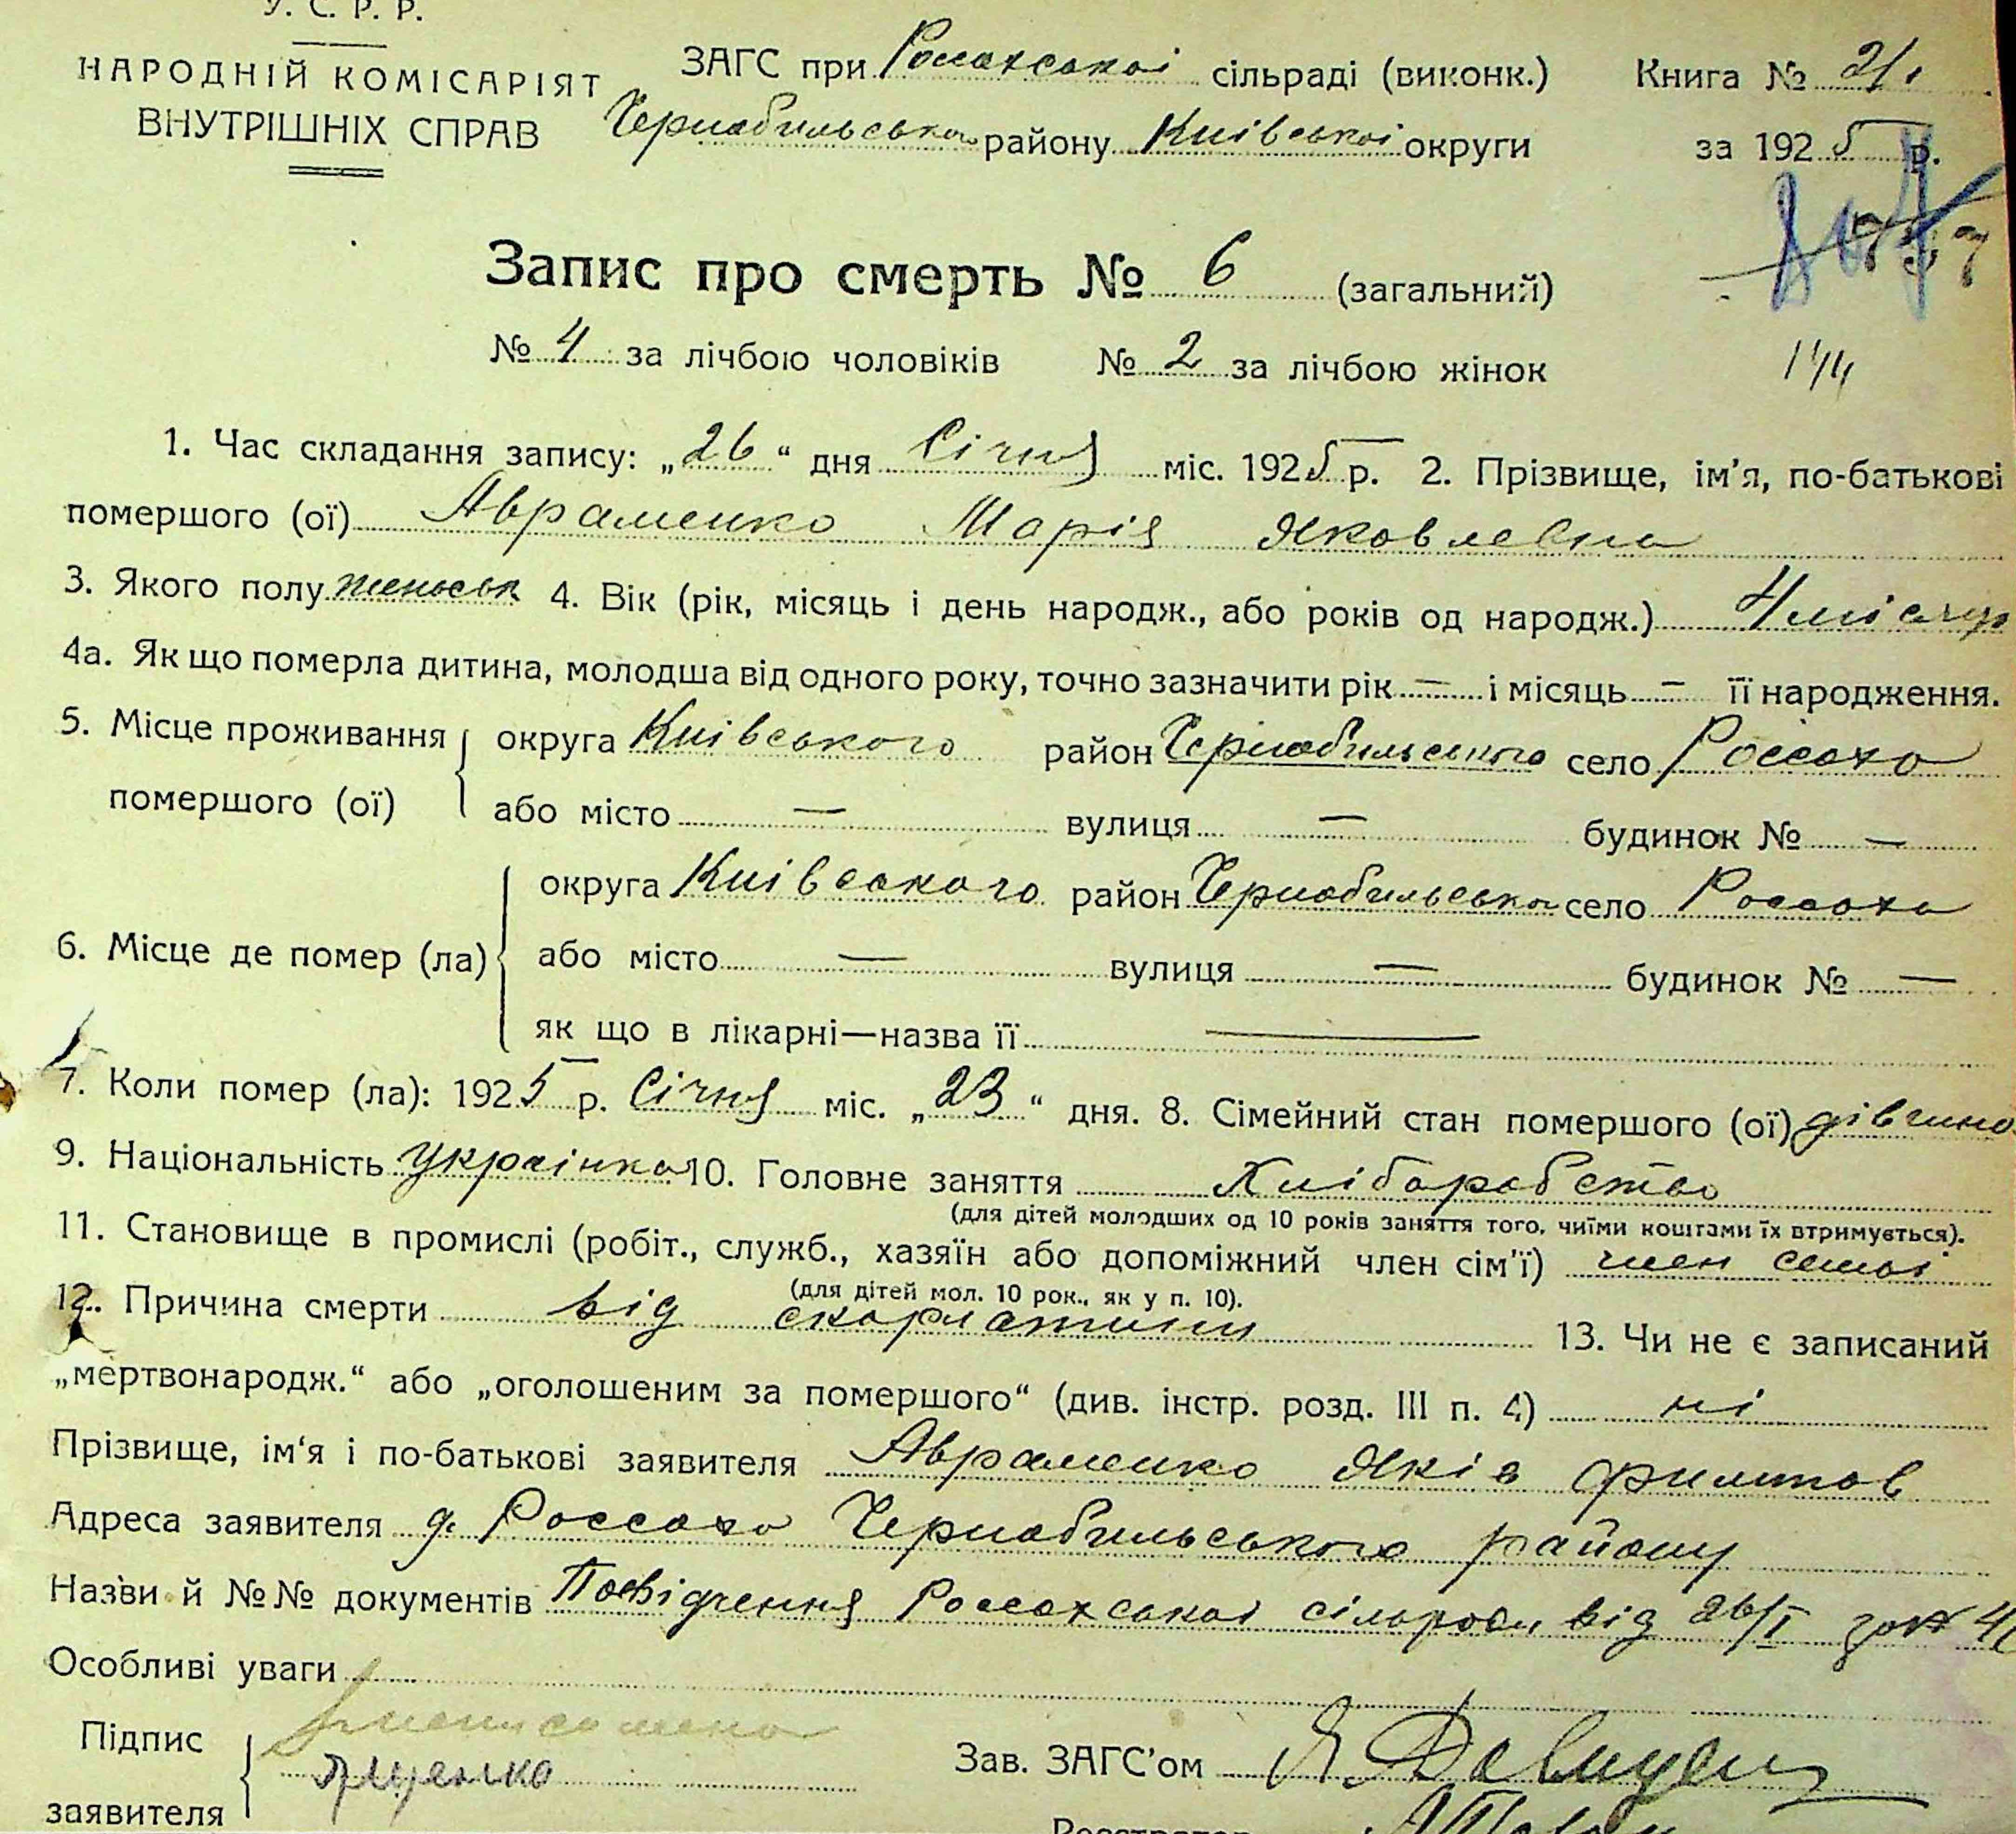 У. С. Р. Р.
НАРОДНІЙ КОМІСАРІЯТ
ВНУТРІШНІХ СПРАВ
ЗАГС при Россахської сільраді (виконк.)
Чернобильсько району Київської округи
Книга № 21
за 1925 р.
Запис про смерть № 6 (загальний)
№ 4 за лічбою чоловіків № 2 за лічбою жінок
1. Час складання запису: „26“ дня Січня міс. 1925 р. 2. Прізвище, ім'я, по-батькові
помершого (ої) Авраменко Марія Яковлевна
3. Якого полу женськ 4. Вік (рік, місяць і день народж., або років од народж.) 4 місяця
4а. Як що померла дитина, молодша від одного року, точно зазначити рік — і місяць — її народження.
5. Місце проживання помершого (ої) округа Київського район Чернобильського село Россоха
або місто — вулиця — будинок № —
6. Місце де помер (ла) округа Київського район Чернобильсько село Россоха
або місто — вулиця — будинок № —
як що в лікарні—назва її —
7. Коли помер (ла): 1925 р. Січня міс. „23“ дня. 8. Сімейний стан помершого (ої) дівчина
9. Національність Українка 10. Головне заняття Хліборобство
(для дітей молодших од 10 років заняття того, чиїми коштами їх втримується).
11. Становище в промислі (робіт., служб., хазяїн або допоміжний член сім'ї) член семьі
(для дітей мол. 10 рок., як у п. 10).
12. Причина смерти від скарлатини 13. Чи не є записаний
„мертвонародж.“ або „оголошеним за помершого“ (див. інстр. розд. III п. 4) ні
Прізвище, ім'я і по-батькові заявителя Авраменко Яків Филипов
Адреса заявителя д. Россоха Чернобильського району
Назви й №№ документів Посвідчення Россохської сільради від 26/I за №
Особливі уваги
Підпис заявителя
Зав. ЗАГС'ом